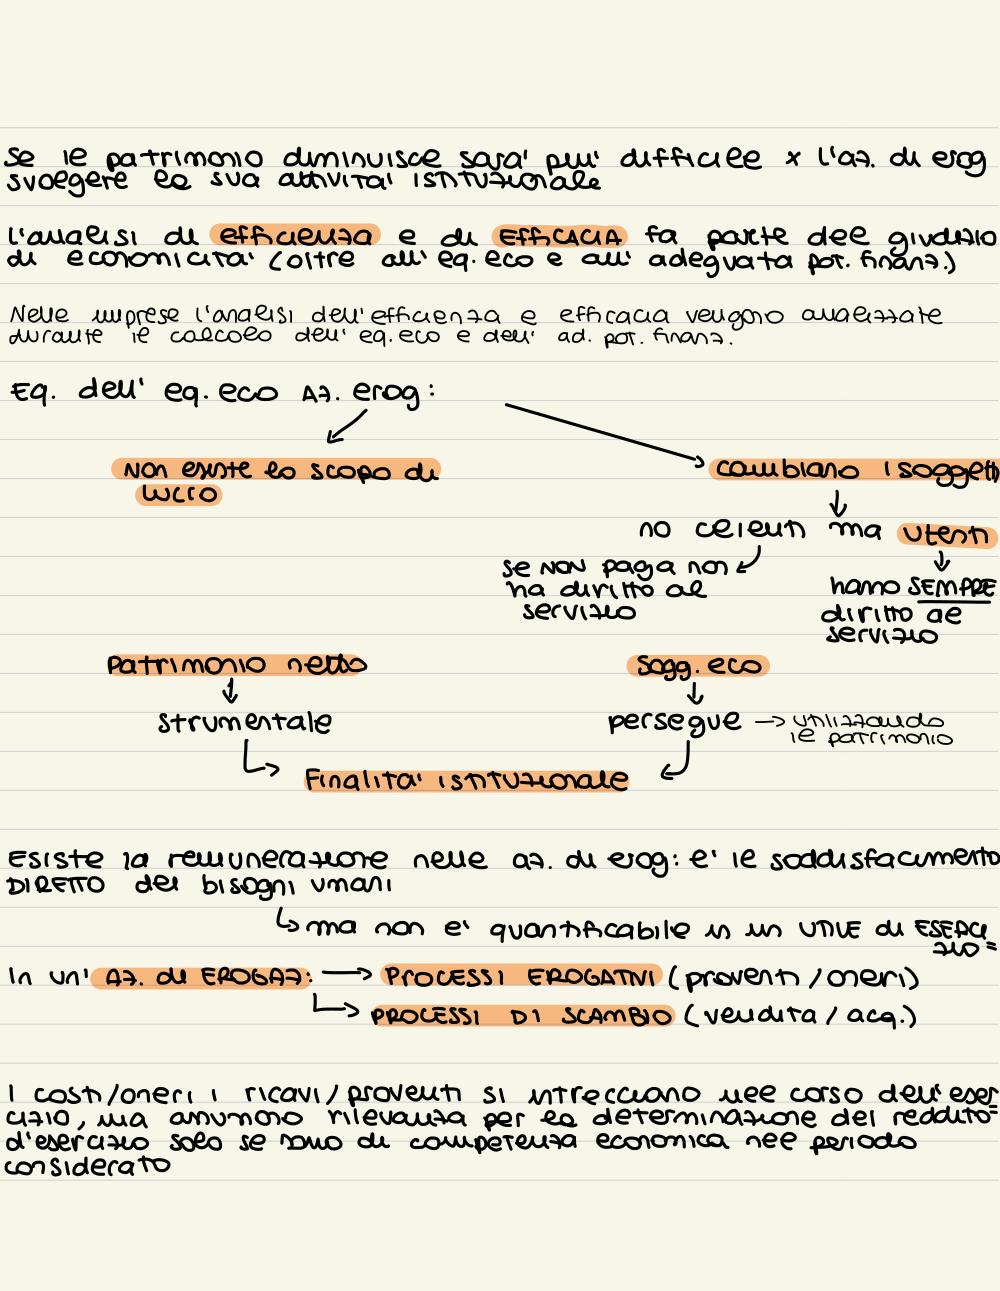 Se il patrimonio diminuisce sara' piu' difficile x l'az. di erog
svolgere la sua attivita' istituzionale
L'analisi di efficienza e di EFFICACIA fa parte del giudizio
di economicita' (oltre all' eq. eco e all' adeguata pot. finanz.)
Nelle imprese l'analisi dell'efficienza e efficacia vengono analizzate
durante il calcolo dell' eq. eco e dell' ad. pot. finanz.
Eq. dell' eq. eco Az. erog:
Non esiste lo scopo di
lucro
cambiano i soggetti
no clienti ma utenti
se non paga non
ha diritto al
servizio
hanno SEMPRE
diritto al
servizio
Patrimonio netto
Sogg. eco
strumentale
persegue → utilizzando
il patrimonio
Finalita' istituzionale
Esiste la remunerazione nelle az. di erog: e' il soddisfacimento
DIRETTO dei bisogni umani
ma non e' quantificabile in un UTILE di ESERCI
zio=
In un' Az. di EROGAZ: → PROCESSI EROGATIVI (proventi / oneri)
PROCESSI DI SCAMBIO (vendita / acq.)
I costi/oneri i ricavi/proventi si intrecciano nel corso dell'eser=
cizio, ma assumono rilevanza per la determinazione del reddito
d'esercizio solo se sono di competenza economica nel periodo
considerato